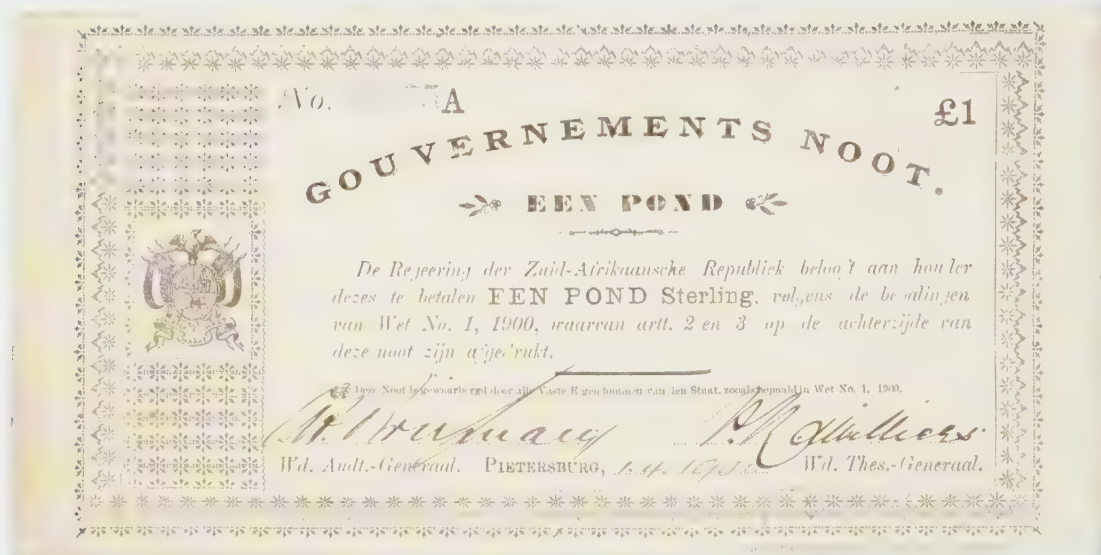 No. A
£1
GOUVERNEMENTS NOOT.
EEN POND
De Regeering der Zuid-Afrikaansche Republiek belooft aan houder
dezes te betalen EEN POND Sterling, volgens de bepalingen
van Wet No. 1, 1900, waarvan artt. 2 en 3 op de achterzijde van
deze noot zijn afgedrukt.
Deze Noot is gewaarborgd door alle Vaste Eigendommen van den Staat, zooals bepaald in Wet No. 1. 1900.
de Villiers
Wd. Audt.-Generaal. PIETERSBURG, Wd. Thes.-Generaal.